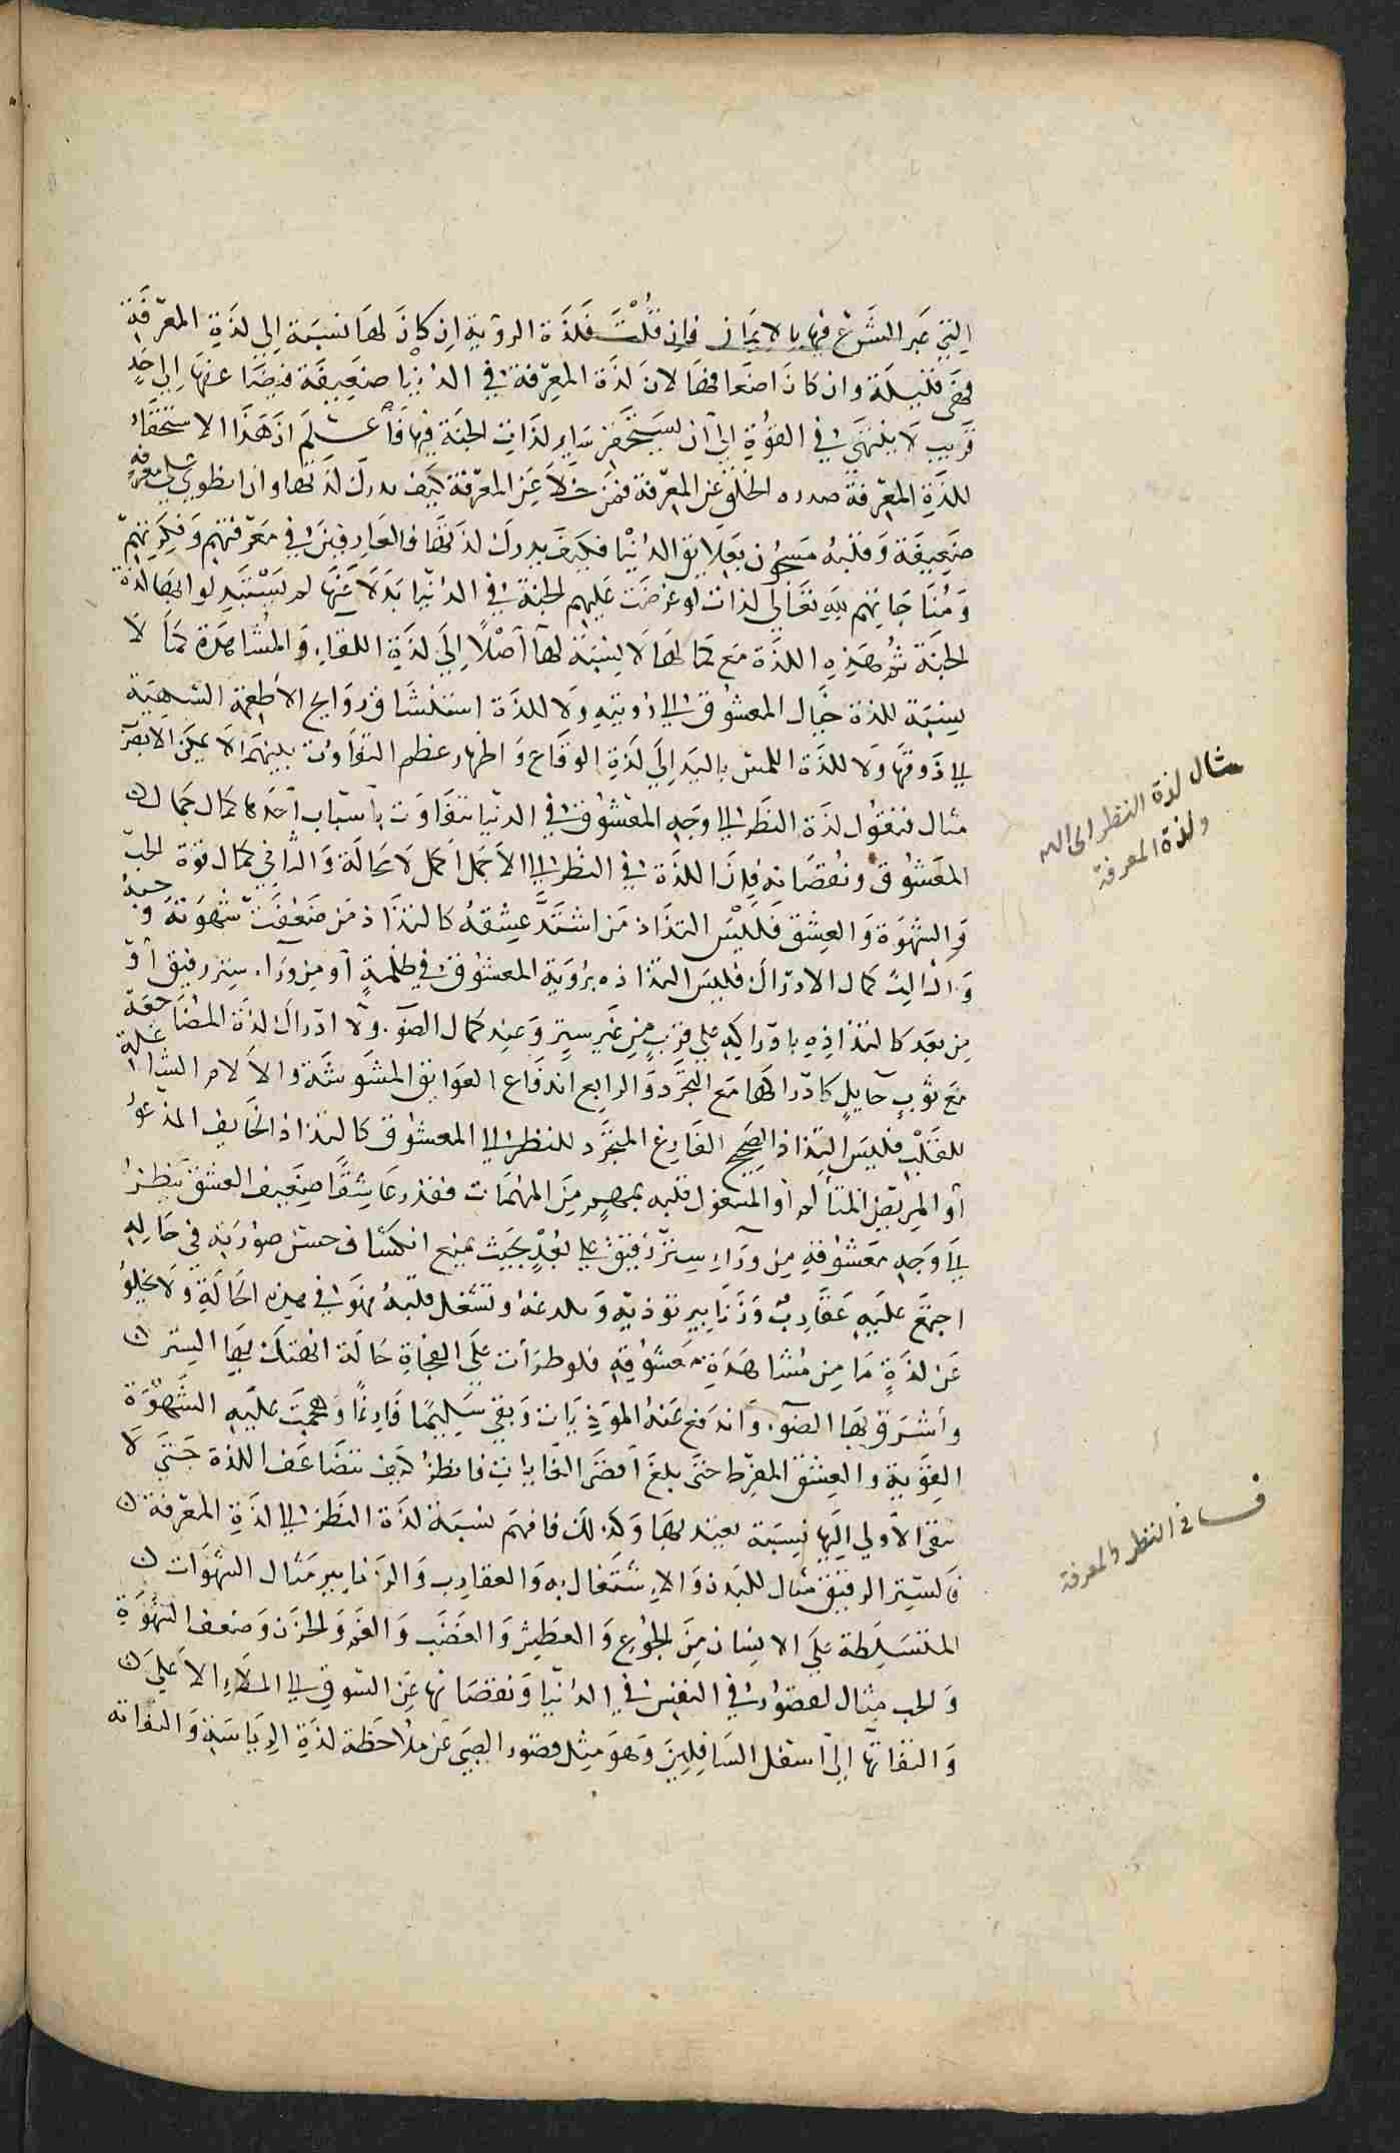 التي عبر الشرع فيها بالايمان فان قُلْتَ فلذة الروية ان كانَ لها نسبة الى لذةِ المعرفَة
فهي قليلة وان كانَ اضعافها لانَ لذة المعرفة في الدنيا ضعيفة فيضَا عنها الى حدٍ
قريب لا ينتهيَ في القوة الى ان يستحقر ساير لذات الجنة فيها فاعلم انَ هذا الاستحقار
للذة المعرفة صدره الخلو عن المعرفة فمن خلا عن المعرفة كيف يدرك لذتها وان انطوى على معرفةٍ
ضعيفة وقلبه مشحون بعلايق الدنيا فكيف يدرك لذتها فالعارفينَ في معرفتهم وفكرتهم
ومُناجاتهم لله تعالى لذات لو عرضت عليهم الجنة في الدنيا بدلا عنها لم يستبدلوا بها لذة
الجنة ثم هذه اللذة مع كمالها لا نسبة لها اصلاً الى لذة اللقاء والمشاهدة كما لا
نسبة للذة خيال المعشوق الى رويته ولا للذة استنشاق روايح الاطعمة الشهية
الى ذوقها ولا للذة اللمس باليد الى لذة الوقاع واظهار عظم التفاوت بينهما لا يمكن الا بضرب
مثال فنقول لذة النظر الى وجه المعشوق في الدنيا تتفاوت باسباب احدها كمال جمال
المعشوق ونقصانه فان اللذة في النظر الى الاجمل اكمل لا محالة والثاني كمال قوة الحب
والشهوة والعشق فليس التذاذ من اشتدَّ عشقه كالتذاذ من ضعفت شهوته وحبهُ
والثالث كمال الادراك فليس التذاذه بروية المعشوق في ظلمةٍ او من وراء ستر رقيق او
من بعد كالتذاذه بادراكه على قربٍ من غير سترٍ وعند كمال الضوء ولا ادراك لذة المضاجعة
مع ثوب حايلٍ كادراكها مع التجرد والرابع اندفاع العوايق المشوشة والالام الشاغلة
للقلب فليس التذاذ الصحيح الفارغ المتجرد للنظر الى المعشوق كالتذاذ الخايف المذعور
او المريض المتالم او المشغول قلبه بمهم من المهمات فقدر عاشقًا ضعيف العشق ينظرُ
الى وجه معشوقه من وراء سترٍ رقيقٍ على بُعْدٍ بحيث يمنع انكشاف حسن صورته في حاله
اجتمع عليه عقارب وزنابير توذيه وتلدغهُ وتشغل قلبهُ فهو في هذه الحالة ولا يخلو
عن لذةٍ ما من مشاهدة معشوقه فلو طرات على الفجاةِ حالة انهتك بها الستر
واشرق بها الضوء واندفع عنه الموذيات وبقي سليمًا فارغًا وهجمت عليه الشهوة
القوية والعشق المفرط حتى بلغ اقصى الغايات فانظر كيف تتضاعف اللذة حتى لا
تبقى الاولى اليها نسبة يعتد بها وكذلك فافهم نسبة لذة النظر الى لذة المعرفة
فالستر الرقيق مثال للبدن والاشتغال به والعقارب والزنابير مثال الشهوات
المتسلطة على الانسان من الجوع والعطش والغضب والغم والحزن وضعف الشهوة
والحب مثال لقصور في النفس في الدنيا ونقصانها عن الشوق الى الملاء الاعلى
والتفاتها الى اسفل السافلين وهو مثل قصور الصبي عن ملاحظة لذة الرياسة والتفاته
مثال لذة النظر الى الله
ولذة المعرفة
ف في النظر والمعرفة